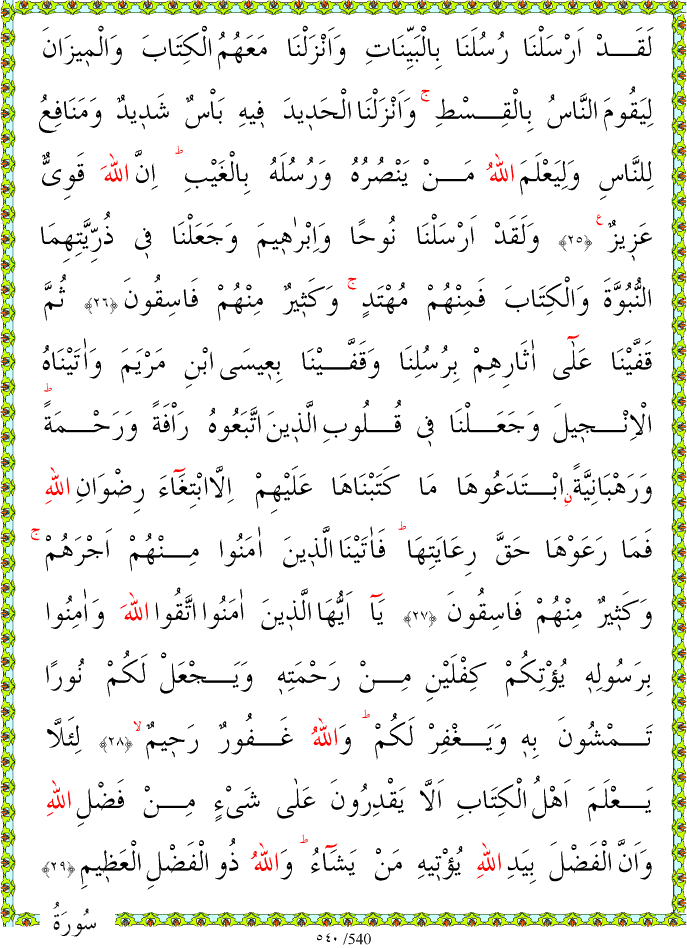 لَقَدْ اَرْسَلْنَا رُسُلَنَا بِالْبَيِّنَاتِ وَاَنْزَلْنَا مَعَهُمُ الْكِتَابَ وَالْم۪يزَانَ
لِيَقُومَ النَّاسُ بِالْقِسْطِۚ وَاَنْزَلْنَا الْحَد۪يدَ ف۪يهِ بَاْسٌ شَد۪يدٌ وَمَنَافِعُ
لِلنَّاسِ وَلِيَعْلَمَ اللّٰهُ مَنْ يَنْصُرُهُ وَرُسُلَهُ بِالْغَيْبِۜ اِنَّ اللّٰهَ قَوِيٌّ
عَز۪يزٌ۟ ﴿٢٥﴾ وَلَقَدْ اَرْسَلْنَا نُوحًا وَاِبْرٰه۪يمَ وَجَعَلْنَا ف۪ي ذُرِّيَّتِهِمَا
النُّبُوَّةَ وَالْكِتَابَ فَمِنْهُمْ مُهْتَدٍۚ وَكَث۪يرٌ مِنْهُمْ فَاسِقُونَ ﴿٢٦﴾ ثُمَّ
قَفَّيْنَا عَلٰٓى اٰثَارِهِمْ بِرُسُلِنَا وَقَفَّيْنَا بِع۪يسَى ابْنِ مَرْيَمَ وَاٰتَيْنَاهُ
الْاِنْج۪يلَ وَجَعَلْنَا ف۪ي قُلُوبِ الَّذ۪ينَ اتَّبَعُوهُ رَاْفَةً وَرَحْمَةًۜ
وَرَهْبَانِيَّةًۨ ابْتَدَعُوهَا مَا كَتَبْنَاهَا عَلَيْهِمْ اِلَّا ابْتِغَٓاءَ رِضْوَانِ اللّٰهِ
فَمَا رَعَوْهَا حَقَّ رِعَايَتِهَاۜ فَاٰتَيْنَا الَّذ۪ينَ اٰمَنُوا مِنْهُمْ اَجْرَهُمْۚ
وَكَث۪يرٌ مِنْهُمْ فَاسِقُونَ ﴿٢٧﴾ يَٓا اَيُّهَا الَّذ۪ينَ اٰمَنُوا اتَّقُوا اللّٰهَ وَاٰمِنُوا
بِرَسُولِه۪ يُؤْتِكُمْ كِفْلَيْنِ مِنْ رَحْمَتِه۪ وَيَجْعَلْ لَكُمْ نُورًا
تَمْشُونَ بِه۪ وَيَغْفِرْ لَكُمْۜ وَاللّٰهُ غَفُورٌ رَح۪يمٌۙ ﴿٢٨﴾ لِئَلَّا
يَعْلَمَ اَهْلُ الْكِتَابِ اَلَّا يَقْدِرُونَ عَلٰى شَيْءٍ مِنْ فَضْلِ اللّٰهِ
وَاَنَّ الْفَضْلَ بِيَدِ اللّٰهِ يُؤْت۪يهِ مَنْ يَشَٓاءُۜ وَاللّٰهُ ذُو الْفَضْلِ الْعَظ۪يمِ ﴿٢٩﴾
سُورَةُ
٥٤٠ /540